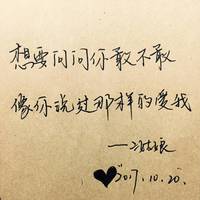 想要问问你敢不敢
像你说过那样的爱我
2017.10.20.